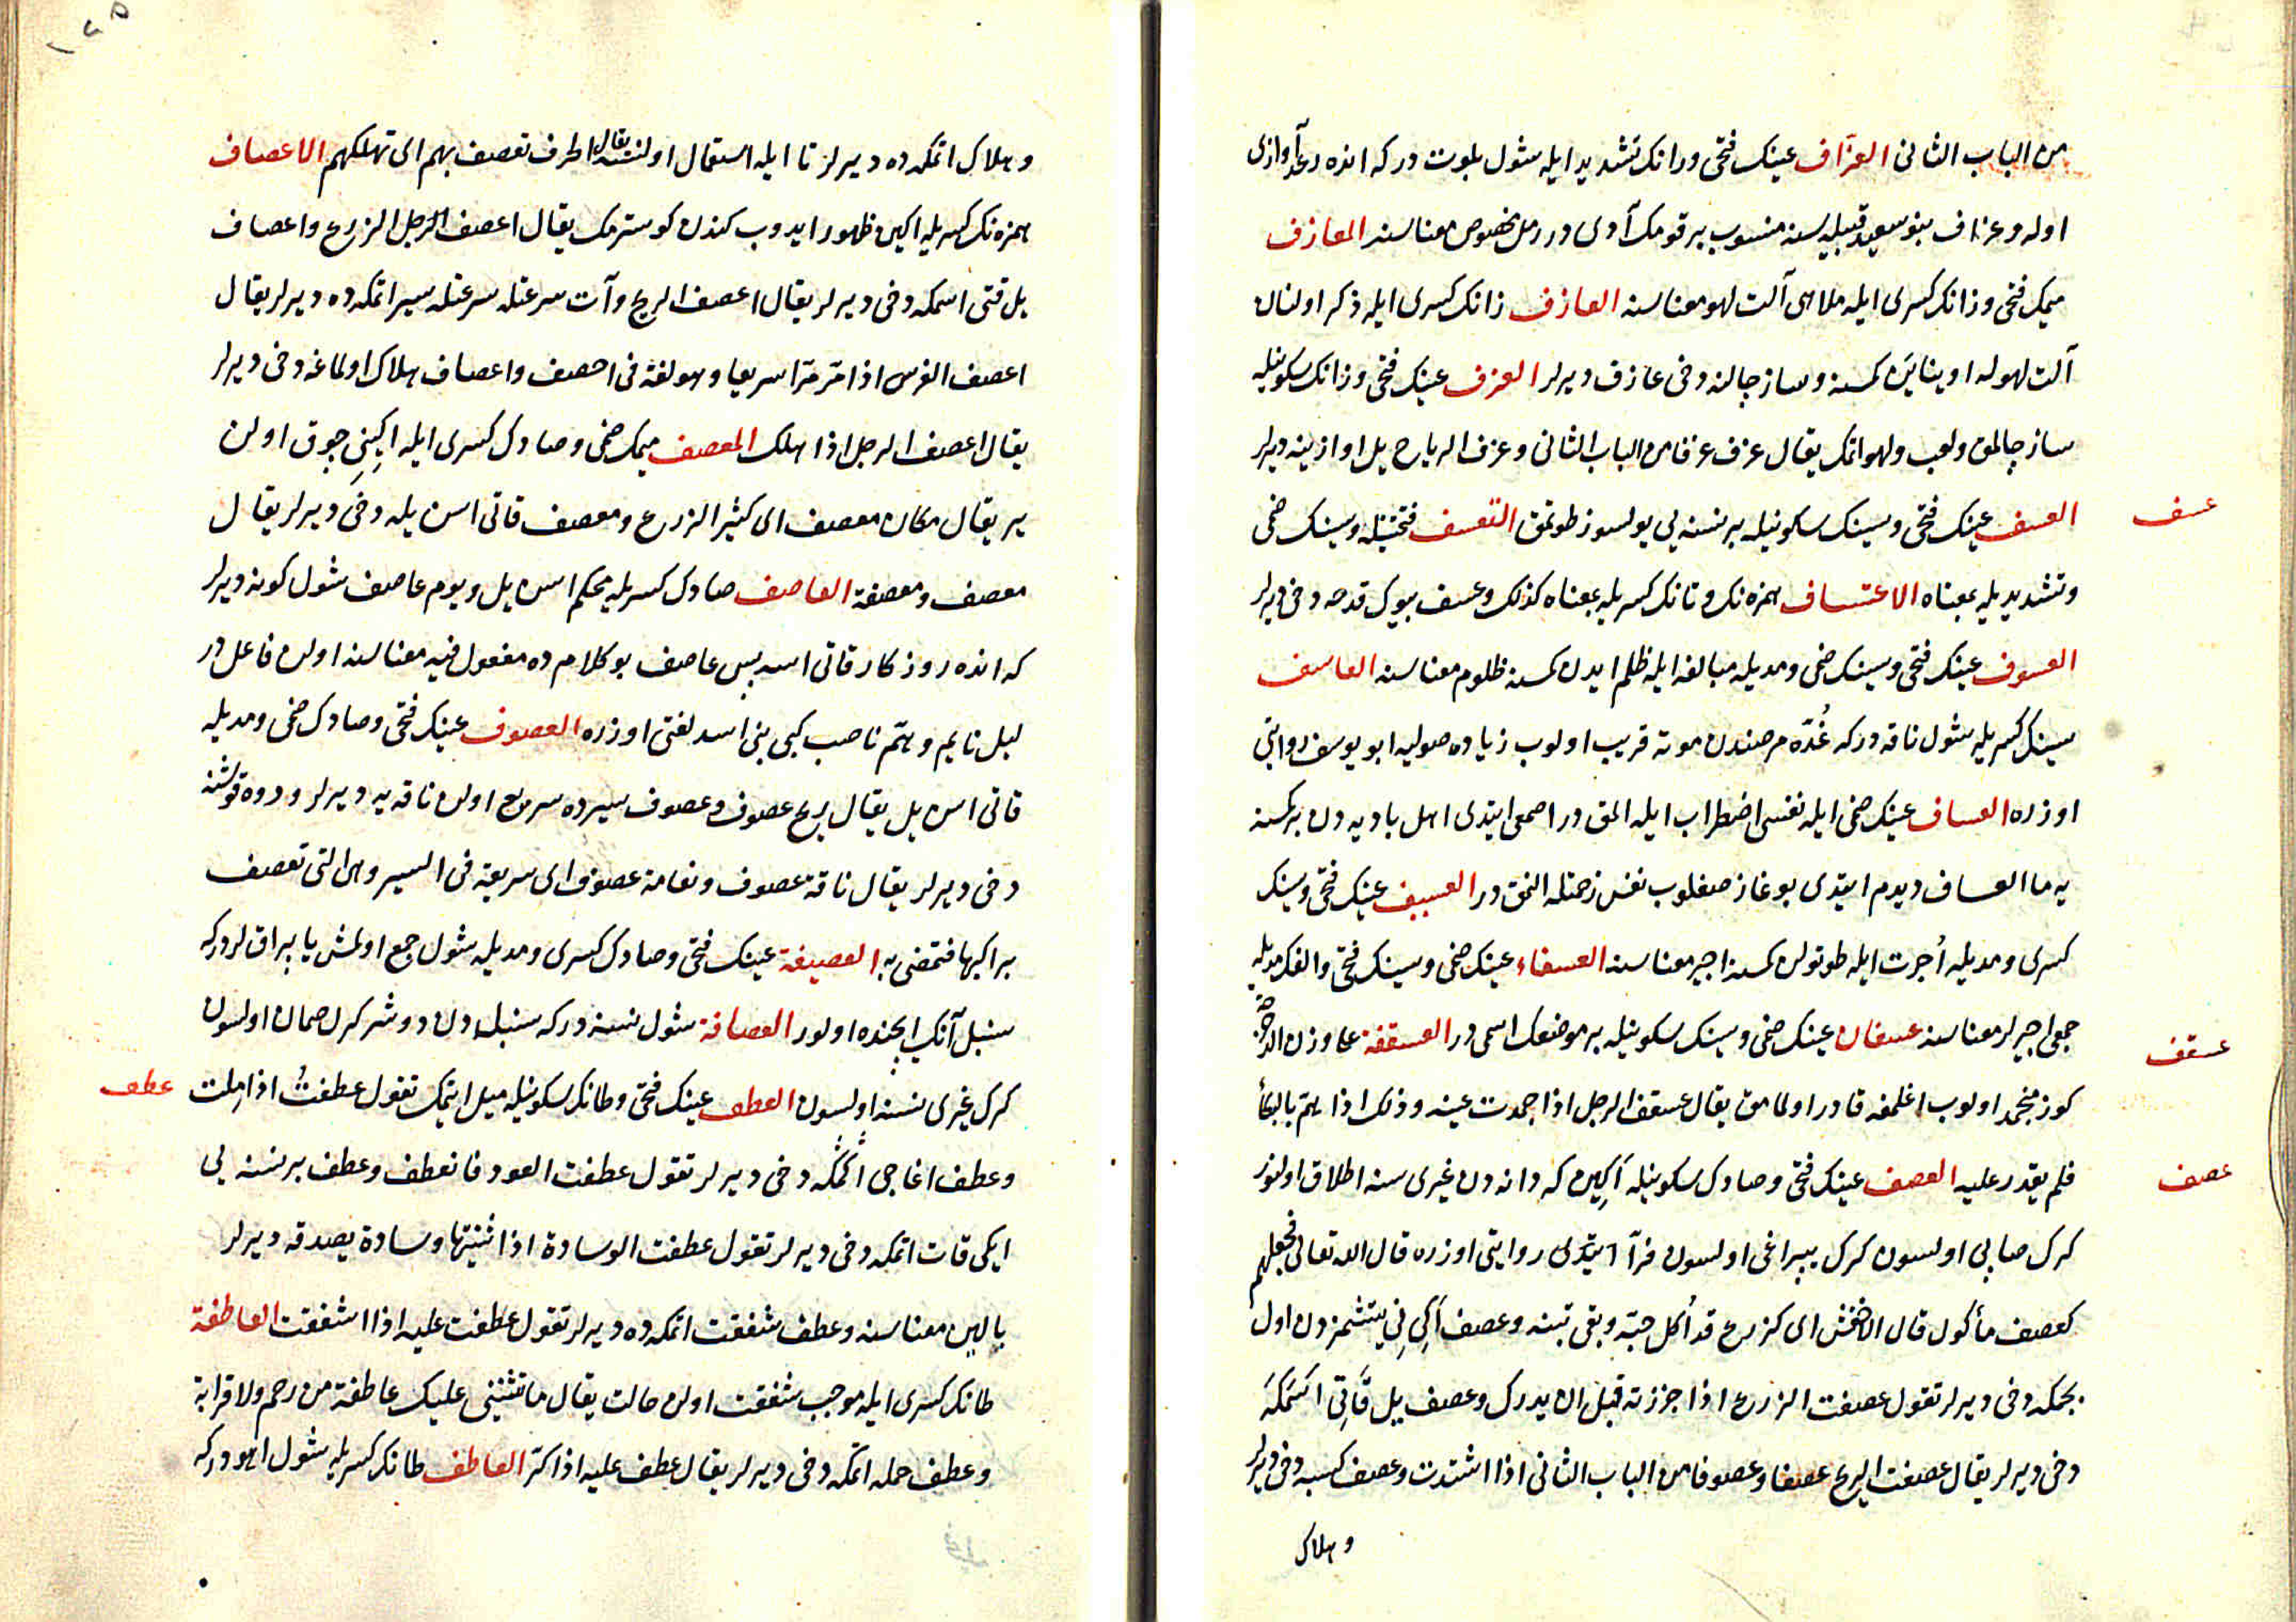 من الباب الثانى العزاف عينك فتحى ورانك تشديد ايله شول بلوت دركه انده رعد آوازى
اوله وعزاف بنو سعيد قبيله سنه منسوب بر قومك آدى در رمل مخصوص معناسنه المعازف
ميمك فتحى وزانك كسرى ايله ملاهى آلت لهو معناسنه العازف زانك كسرى ايله ذكر اولنان
آلت لهوله اوينايَن كمسنه وساز جالنه دخى عازف ديرلر العزف عينك فتحى وزانك سكونيله
ساز جالمق ولعب ولهو اتمك يقال عزف عزفا من الباب الثانى وعزف الرياح يل اوازينه ديرلر
عسف
العسف عينك فتحى وسينك سكونيله بر نسنه يى يولسوز طوتمق التعسف فتحتيله وسينك ضمى
وتشديديله بمعناه الاعتساف همزه نك وتانك كسريله بمعناه كذلك وعسف بيوك قدحه دخى ديرلر
العسوف عينك فتحى وسينك ضمى ومديله مبالغه ايله ظلم ايدن كمسنه ظلوم معناسنه العاسف
سينك كسريله شول ناقه دركه غُدّه مرضندن موته قريب اولوب زياده صوليه ابو يوسف روايتى
اوزره العساف عينك ضمى ايله نفسى اضطراب ايله المق در اصمعى ايتدى اهل باديه دن بر كمسنه
يه ما العساف ديدم ايتدى بوغاز صغلوب نفس زحمتله النمق در العسيف عينك فتحى وسينك
كسرى ومديله اُجرت ايله طوتولن كمسنه اجير معناسنه العسفاء عينك ضمى وسينك فتحى والفك مديله
جمعى اجيرلر معناسنه عسفان عينك ضمى وسينك سكونيله بر موضعك اسمى در العسقفة على وزن الدحرجة
عسقف
كوز منجمد اولوب اغلمغه قادر اولمامق يقال عسقف الرجل اذا جمدت عينه وذلك اذا همّ بالبكأ
عصف
فلم يقدر عليه العصف عينك فتحى وصادك سكونيله اَكين كه دانه دن غيرى سنه اطلاق اولنور
كرك صاپى اولسون كرك يپراغى اولسون فرآ ايتدى روايتى اوزره قال الله تعالى فجعلهم
كعصف مأكول قال الاخفش اى كزرع قد اُكل حبّه وبقى تبنه وعصف اَكِى نِى يتشمزدن اول
بچمكه دخى ديرلر تقول عصفت الزرع اذا جززته قبل ان يدرك وعصف ييل قَاتِى اَسَمكَه
دخى ديرلر يقال عصفت الريح عصفا وعصوفا من الباب الثانى اذا اشتدت وعصف كسبه دخى ديرلر
وهلاك
وهلاك اتمكه ده ديرلر تا ايله استعمال اولنسه يقال الحرف تعصف بهم اى تهلكهم الاعصاف
همزه نك كسريله اكين ظهور ايدوب كندن كوسترمك يقال اعصف الرجل الزرع واعصاف
يل قتى اسمكه دخى ديرلر يقال اعصف الريح وآت سرعتله سرعتله سير اتمكه ده ديرلر يقال
اعصف الفرس اذا مرّ مرّا سريعا وهو لغة فى احصف واعصاف هلاك اولماغه دخى ديرلر
يقال اعصف الرجل اذا هلك المعصف ميمك ضمى وصادك كسرى ايله اكِينِى چوق اولن
ير يقال مكان معصف اى كثير الزرع ومعصف قاتى اسن يله دخى ديرلر يقال
معصف ومعصفة العاصف صادك كسريله محكم اسن يل ويوم عاصف شول كونه ديرلر
كه انده روزكار قاتى اسه پس عاصف بو كلامده مفعول فيه معناسنه اولن فاعل در
ليل نايم وهمّ ناصب كبى بنى اسد لغتى اوزره العصوف عينك فتحى وصادك ضمى ومديله
قاتى اسن يل يقال ريح عصوف وعصوف سيرده سريع اولن ناقه يه ديرلر ودوه قوشنه
دخى ديرلر يقال ناقة عصوف ونعامة عصوف اى سريعة فى السير وهى التى تعصف
براكبها فتمضى به العصيفة عينك فتحى وصادك كسرى ومديله شول جمع اولمش ياپراقلردركه
سنبل آنك ايچنده اولور العصافة شول نسنه دركه سنبلدن دوشر كرك صمان اولسون
كرك غيرى نسنه اولسون العطف عينك فتحى وطانك سكونيله ميل ايتمك تقول عطفتُ اذا مِلت
عطف
وعطف اغاجى اَكمكه دخى ديرلر تقول عطفت العود فانعطف وعطف بر نسنه يى
ايكى قات اتمكه دخى ديرلر تقول عطفت الوسادة اذا ثنيتها وسادة يصدقه ديرلر
بالين معناسنه وعطف شفقت اتمكه ده ديرلر تقول عطفت عليه اذا اشفقت العاطفة
طانك كسرى ايله موجب شفقت اولن حالت يقال ما تثنينى عليك عاطفة من رحم ولا قرابة
وعطف حمله اتمكه دخى ديرلر يقال عطف عليه اذا كرّ العاطف طانك كسريله شول اهو دركه